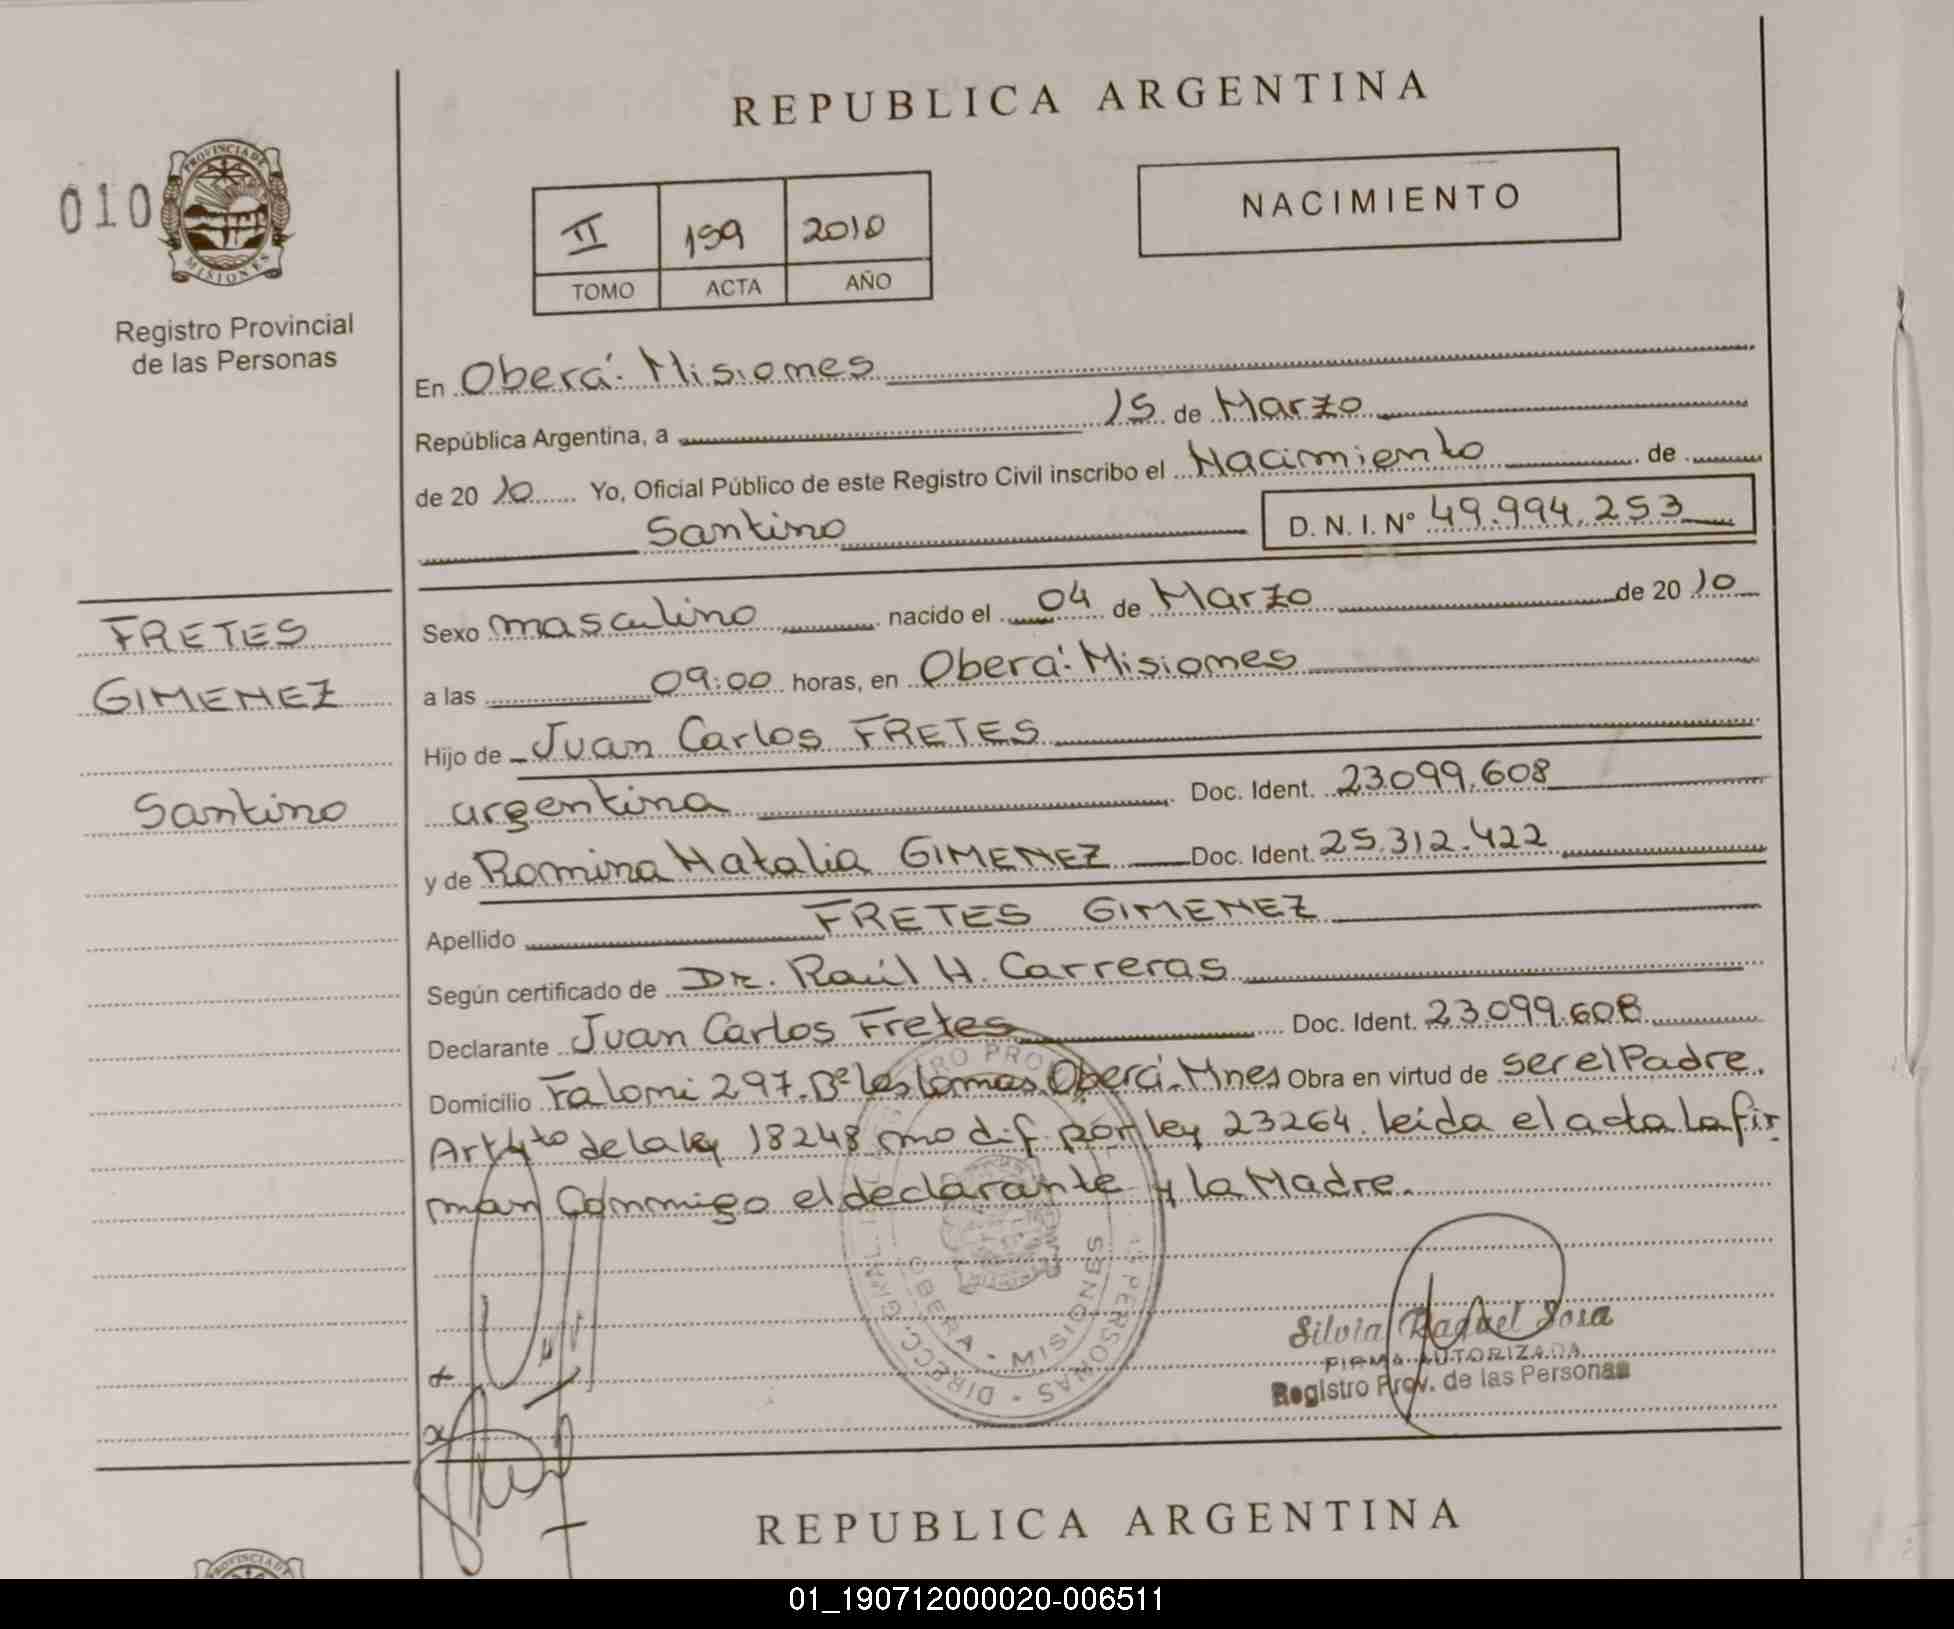 REPUBLICA ARGENTINA
010
PROVINCIA DE
MISIONES
Registro Provincial
de las Personas
II 159 2010
TOMO ACTA AÑO
NACIMIENTO
En Oberá: Misiones
República Argentina, a 15 de Marzo
de 20 10 Yo, Oficial Público de este Registro Civil inscribo el Nacimiento de
Santino D. N. I. Nº 49.994.253
FRETES
GIMENEZ
Santino
Sexo masculino nacido el 04 de Marzo de 20 10
a las 09:00 horas, en Oberá: Misiones
Hijo de Juan Carlos FRETES
argentina Doc. Ident. 23.099.608
y de Romina Natalia GIMENEZ Doc. Ident. 25.312.422
Apellido FRETES GIMENEZ
Según certificado de Dr. Raúl H. Carreras
Declarante Juan Carlos Fretes Doc. Ident. 23.099.608
Domicilio Falomi 297. Bº las lomas. Oberá. Mnes Obra en virtud de ser el Padre.
Art 4to de la ley 18248 modif. por ley 23264. leida el acta la fir
man conmigo el declarante y la Madre.
OBERA - MISIONES
Silvia Raquel Sosa
FIRMA AUTORIZADA
Registro Prov. de las Personas
REPUBLICA ARGENTINA
PROVINCIA DE
01_190712000020-006511